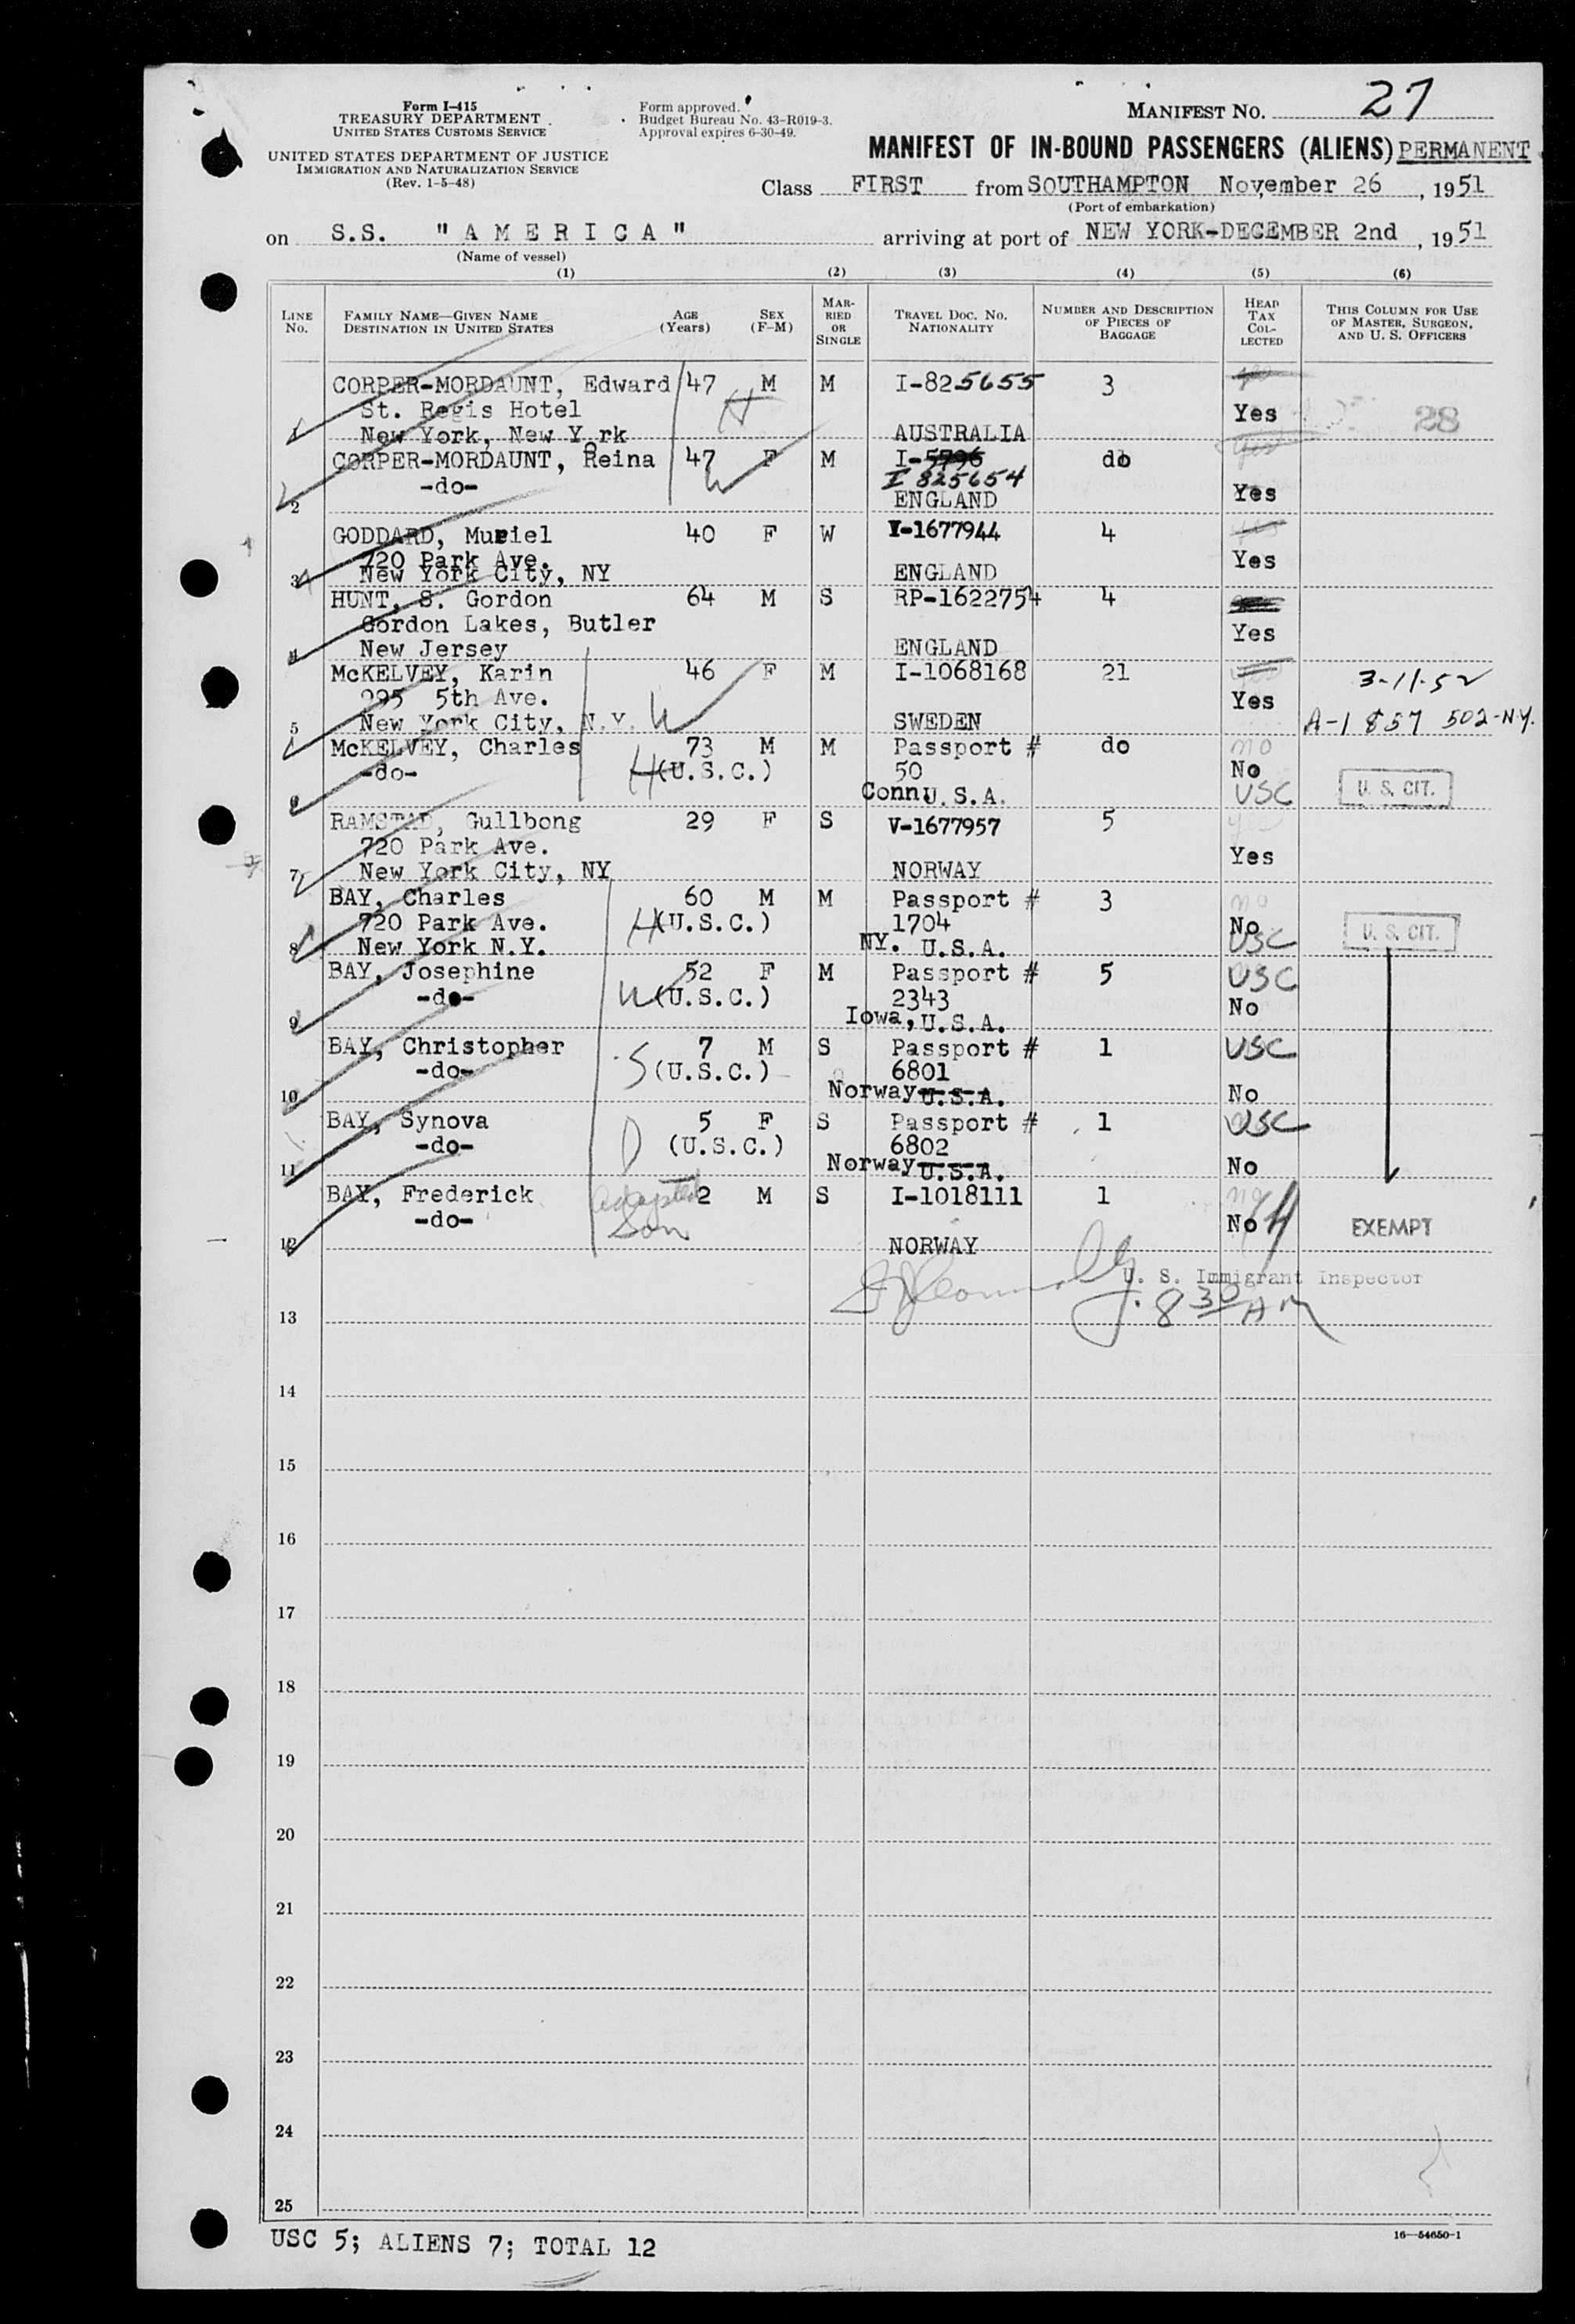 Form I-415
TREASURY DEPARTMENT
UNITED STATES CUSTOMS SERVICE
UNITED STATES DEPARTMENT OF JUSTICE
IMMIGRATION AND NATURALIZATION SERVICE
(Rev. 1-5-48)
Form approved.
Budget Bureau No. 43-R019-3.
Approval expires 6-30-49.
MANIFEST NO. 27
MANIFEST OF IN-BOUND PASSENGERS (ALIENS) PERMANENT
Class FIRST from SOUTHAMPTON November 26, 1951
(Port of embarkation)
on S.S. "A M E R I C A" arriving at port of NEW YORK-DECEMBER 2nd, 1951
(Name of vessel)
(1) (2) (3) (4) (5) (6)
LINE NO. FAMILY NAME—GIVEN NAME DESTINATION IN UNITED STATES AGE (Years) SEX (F-M) MARRIED OR SINGLE TRAVEL DOC. NO. NATIONALITY NUMBER AND DESCRIPTION OF PIECES OF BAGGAGE HEAD TAX COLLECTED THIS COLUMN FOR USE OF MASTER, SURGEON, AND U. S. OFFICERS
CORPER-MORDAUNT, Edward 47 M M I-825655 3
St. Regis Hotel H Yes 28
1 New York, New Y rk AUSTRALIA
CORPER-MORDAUNT, Reina 47 F M I-5796 do
-do- W I 825654
2 ENGLAND Yes
GODDARD, Muriel 40 F W V-1677944 4
720 Park Ave. Yes
3 New York City, NY ENGLAND
HUNT, S. Gordon 64 M S RP-1622754 4
Gordon Lakes, Butler Yes
4 New Jersey ENGLAND
McKELVEY, Karin 46 F M I-1068168 21 3-11-52
295 5th Ave. W Yes
5 New York City, N.Y. SWEDEN A-1 857 502-N.Y.
McKELVEY, Charles 73 M M Passport # do no
-do- H (U.S.C.) 50 No
6 Conn U.S.A. USC U. S. CIT.
RAMSTAD, Gullbong 29 F S V-1677957 5 yes
720 Park Ave. Yes
7 New York City, NY NORWAY
BAY, Charles 60 M M Passport # 3 no
720 Park Ave. H (U.S.C.) 1704 No U. S. CIT.
8 New York N.Y. NY. U.S.A. USC
BAY, Josephine 52 F M Passport # 5 USC
-do- W (U.S.C.) 2343 No
9 Iowa, U.S.A.
BAY, Christopher 7 M S Passport # 1 USC
-do- S (U.S.C.) 6801
10 Norway U.S.A. No
BAY, Synova 5 F S Passport # 1 USC
-do- D (U.S.C.) 6802
11 Norway U.S.A. No
BAY, Frederick adopted 2 M S I-1018111 1 no
-do- Son No EXEMPT
12 NORWAY
U. S. Immigrant Inspector
8 30 AM
13
14
15
16
17
18
19
20
21
22
23
24
25
USC 5; ALIENS 7; TOTAL 12
16—54650-1